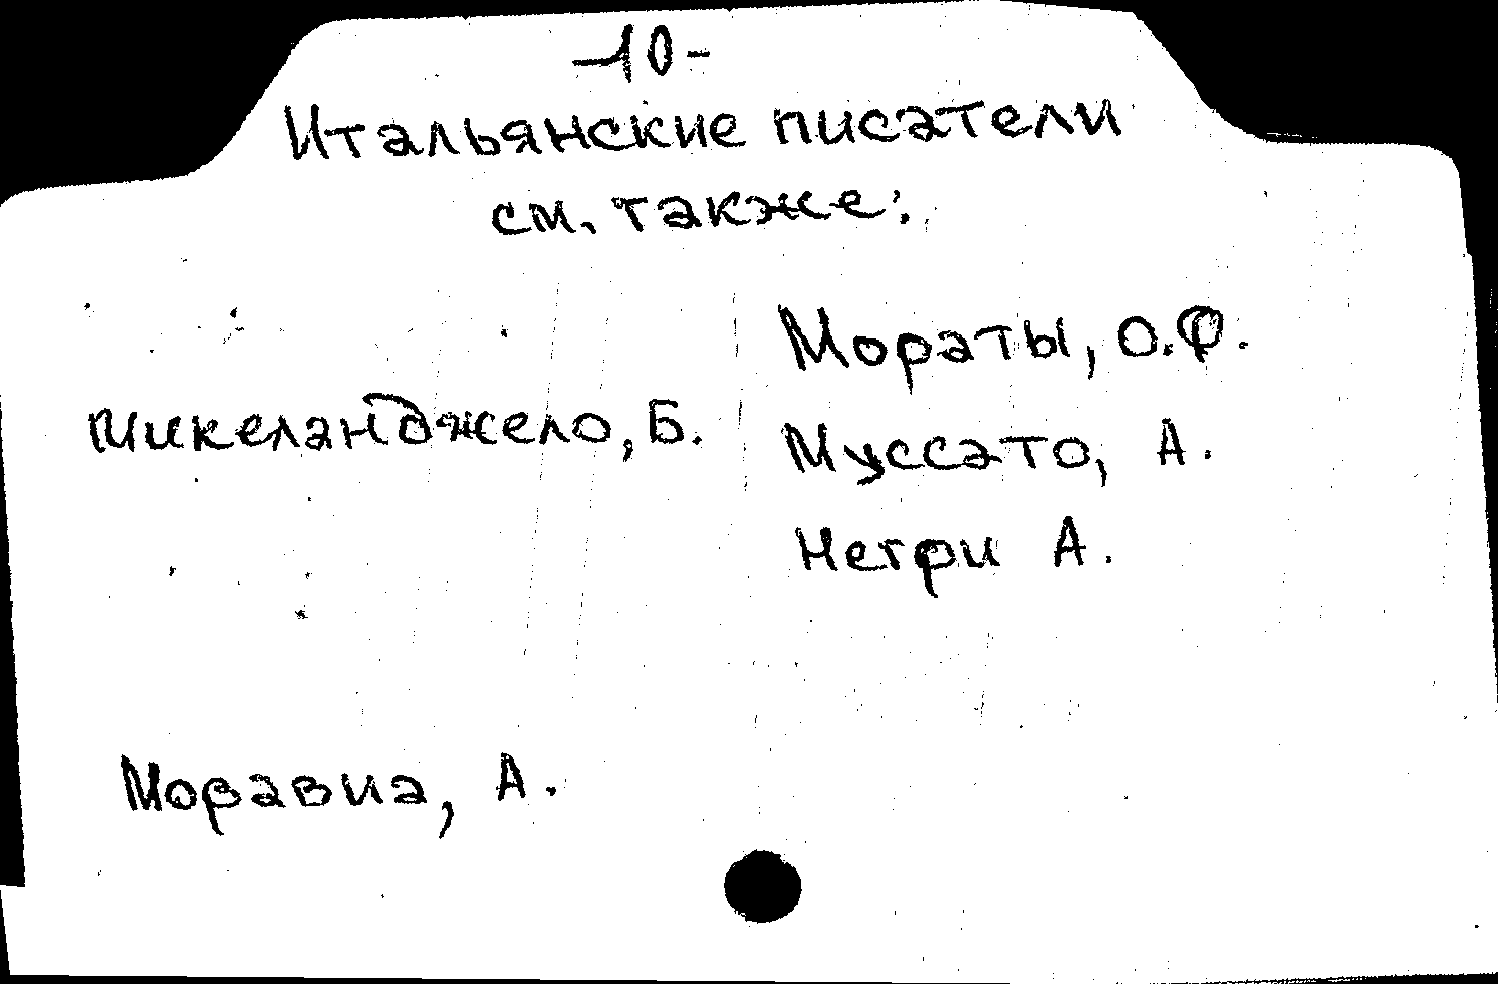 -10-
Итальянские писатели
см. также:
Микеланджело, Б.
Моравиа, А.
Мораты, О.Ф.
Муссато, А.
Негри А.